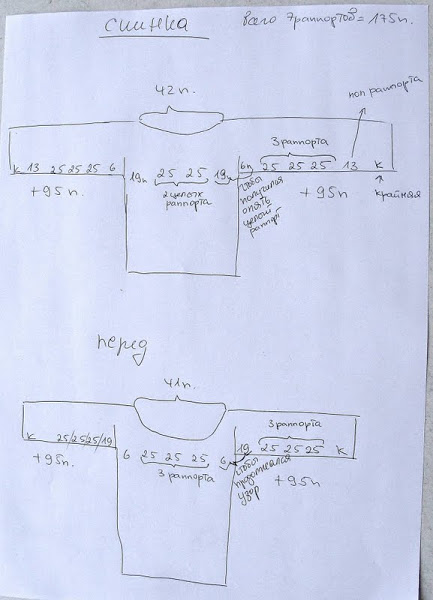 спинка
всего 7раппортов = 175п.
42п.
пол раппорта
3раппорта
к 13 25 25 25 6
19п 25 25 19
6п 25 25 25 13 к
+95п
2целых
раппорта
+95п
крайняя
чтобы
получился
опять
целый
раппорт
перед
41п.
3раппорта
к 25/25/25/19
6 25 25 25 6
19 25 25 25 к
+95п.
3 раппорта
чтобы
продолжался
узор
+95п